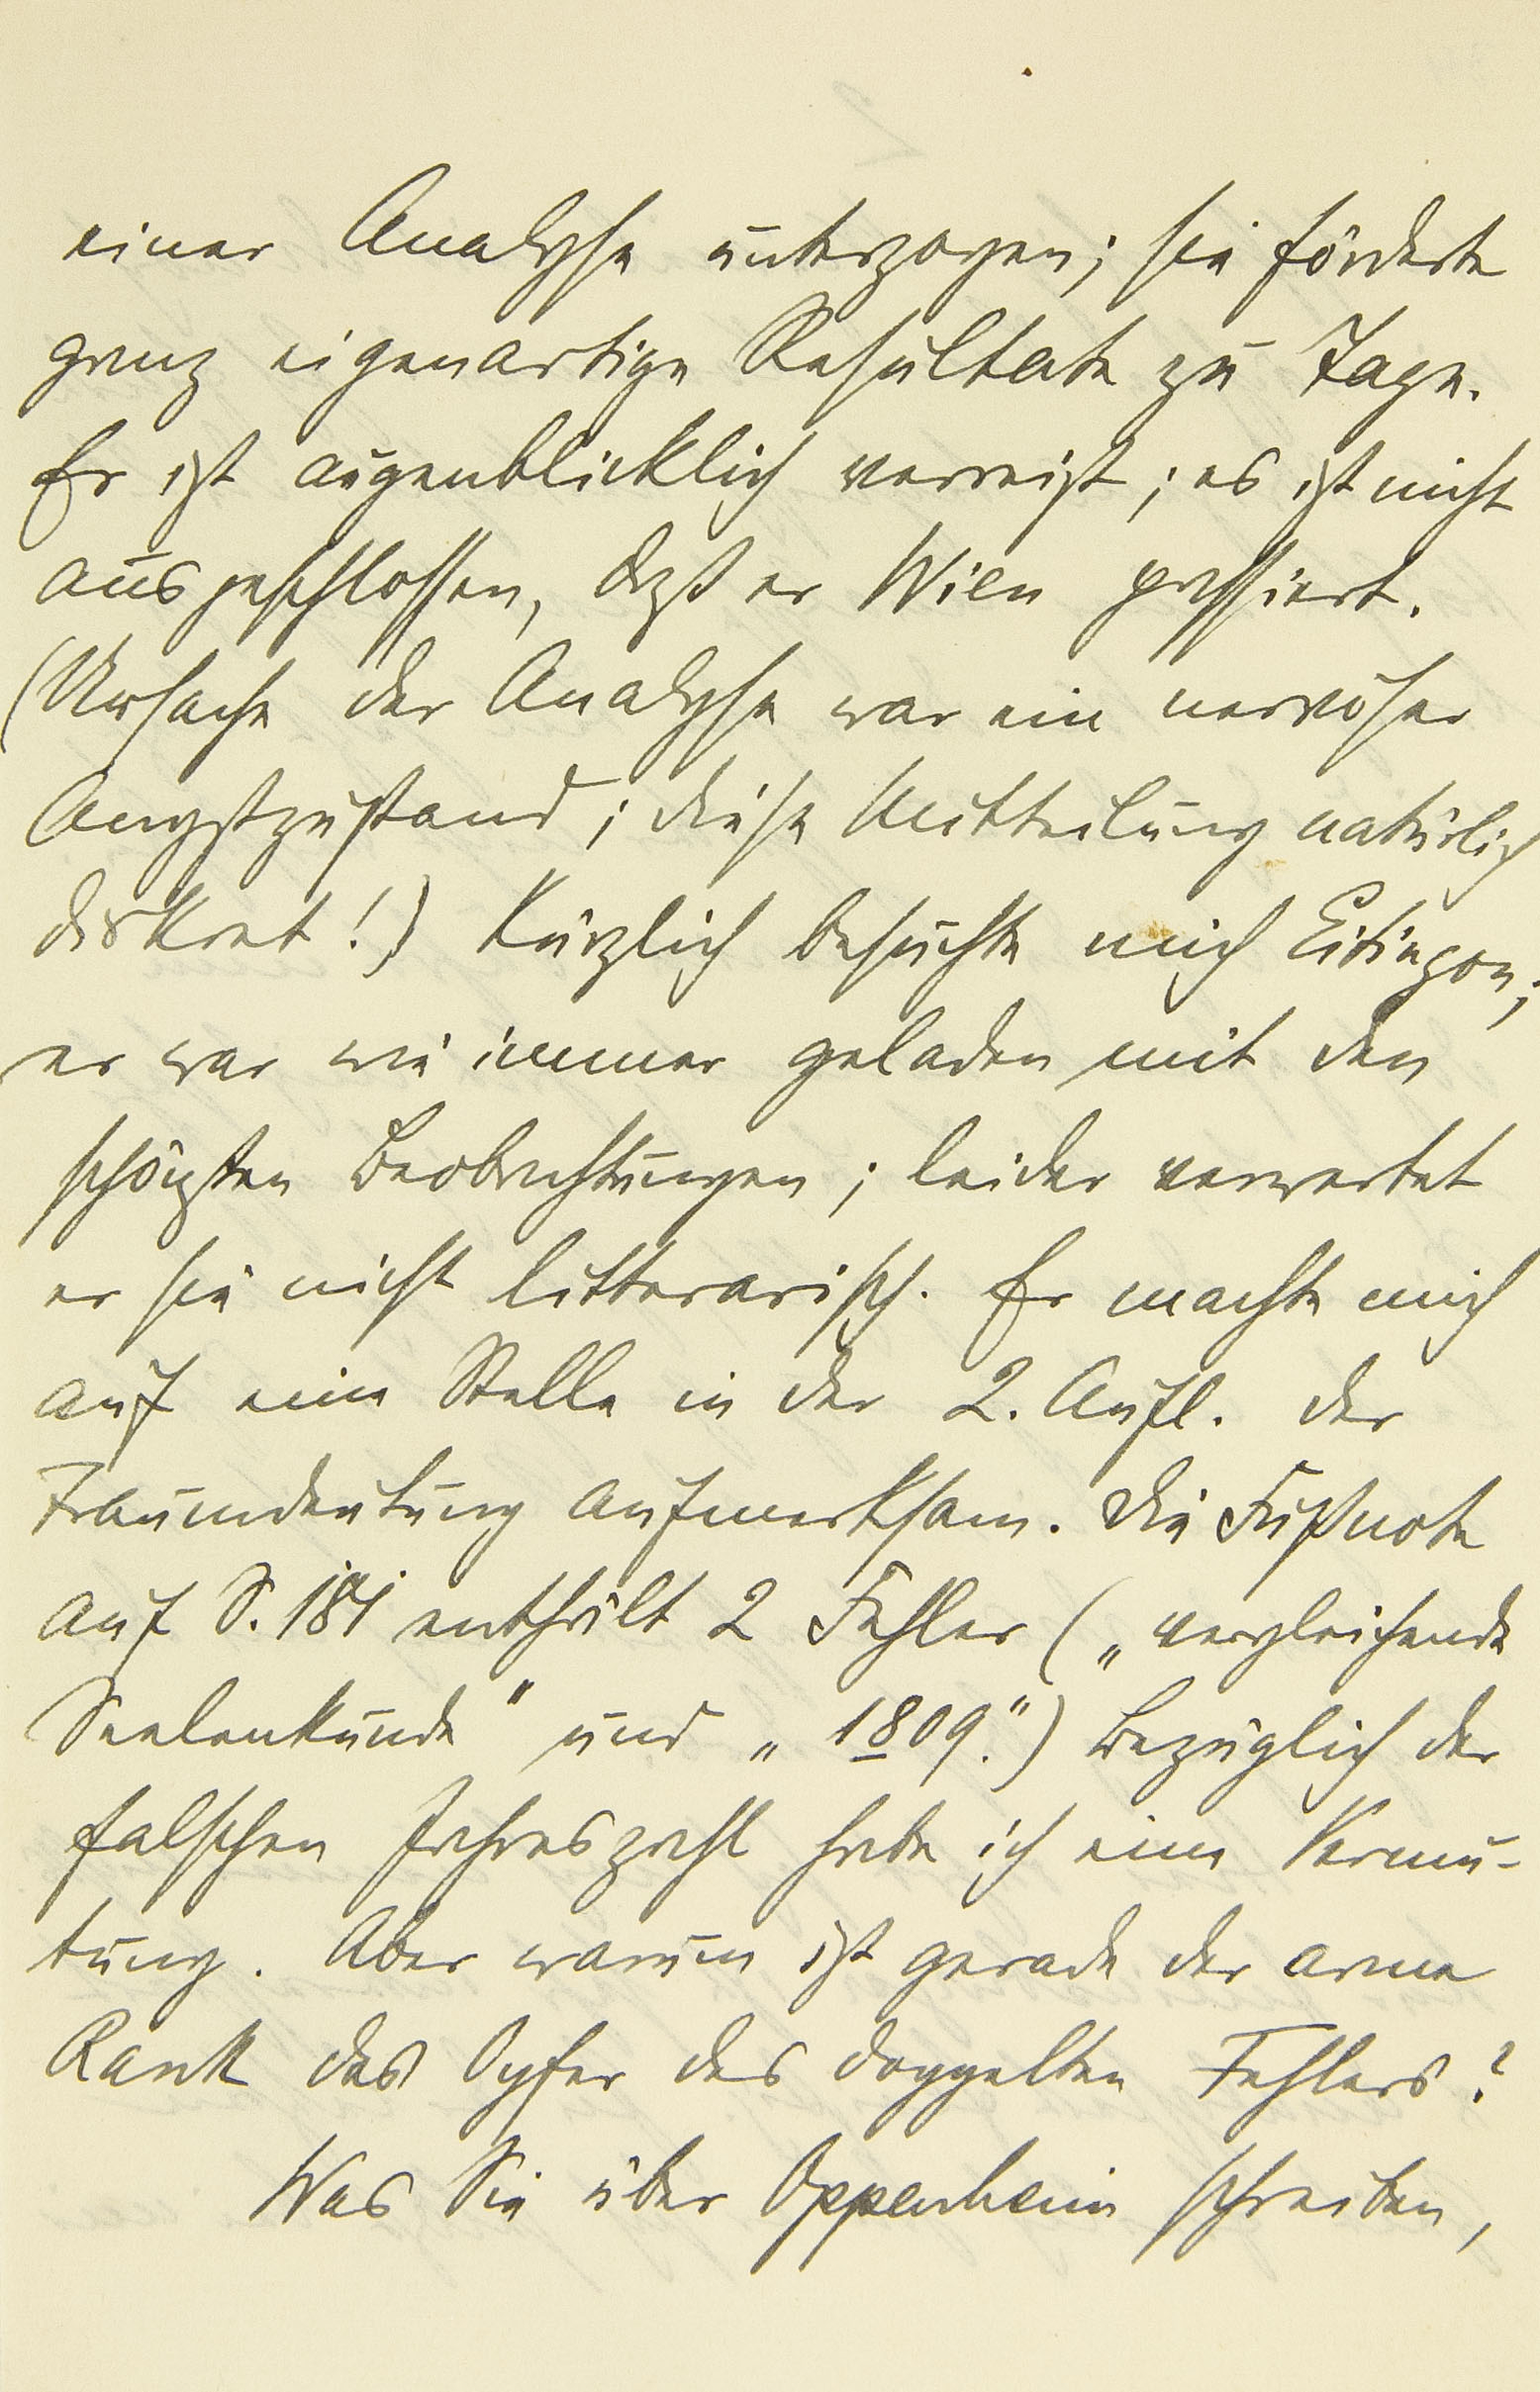 einer Analyse unterzogen; sie förderte
ganz eigenartige Resultate zu Tage.
Er ist augenblicklich verreist; es ist nicht
ausgeschlossen, daß er Wien passiert.
(Ursache der Analyse war ein nervöser
Angstzustand; diese Mitteilung natürlich
diskret!) Kürzlich besuchte mich Eitingon;
er war wie immer geladen mit den
schönsten Beobachtungen; leider verwertet
er sie nicht litterarisch. Er machte mich
auf eine Stelle in der 2. Aufl. der
Traumdeutung aufmerksam. Die Fußnote
auf S. 181 enthält 2 Fehler („vergleichende
Seelenkunde“ und „1809.“) Bezüglich der
falschen Jahreszahl habe ich eine Vermu-
tung. Aber warum ist gerade der arme
Rank das Opfer des doppelten Fehlers?
Was Sie über Oppenheim schreiben,